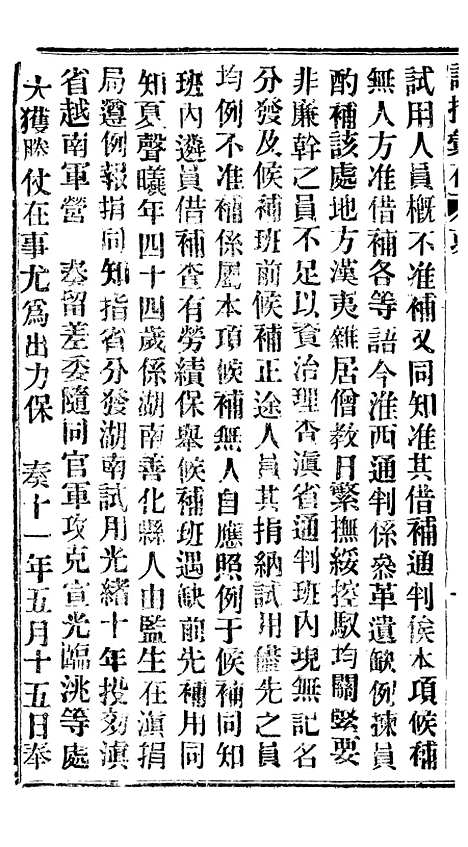 試用人員概不准補又同知准其借補通判俟本項候補
無人方准借補各等語今淮西通判係叅革遺缺例揀員
酌補該處地方漢夷雜居僧教日繁撫綏控馭均關緊要
非廉幹之員不足以資治理查滇省通判班內現無記名
分發及候補班前候補正途人員其捐納試用儘先之員
均例不准補係屬本項候補無人自應照例于候補同知
班內遴員借補查有勞績保舉候補班遇缺前先補用同
知夏聲曦年四十四歲係湖南善化縣人由監生在滇捐
局遵例報捐同知指省分發湖南試用光緒十年投効滇
省越南軍營　奏留差委隨同官軍攻克宣光臨洮等處
大獲勝仗在事尤爲出力保　奏十一年五月十五日奉